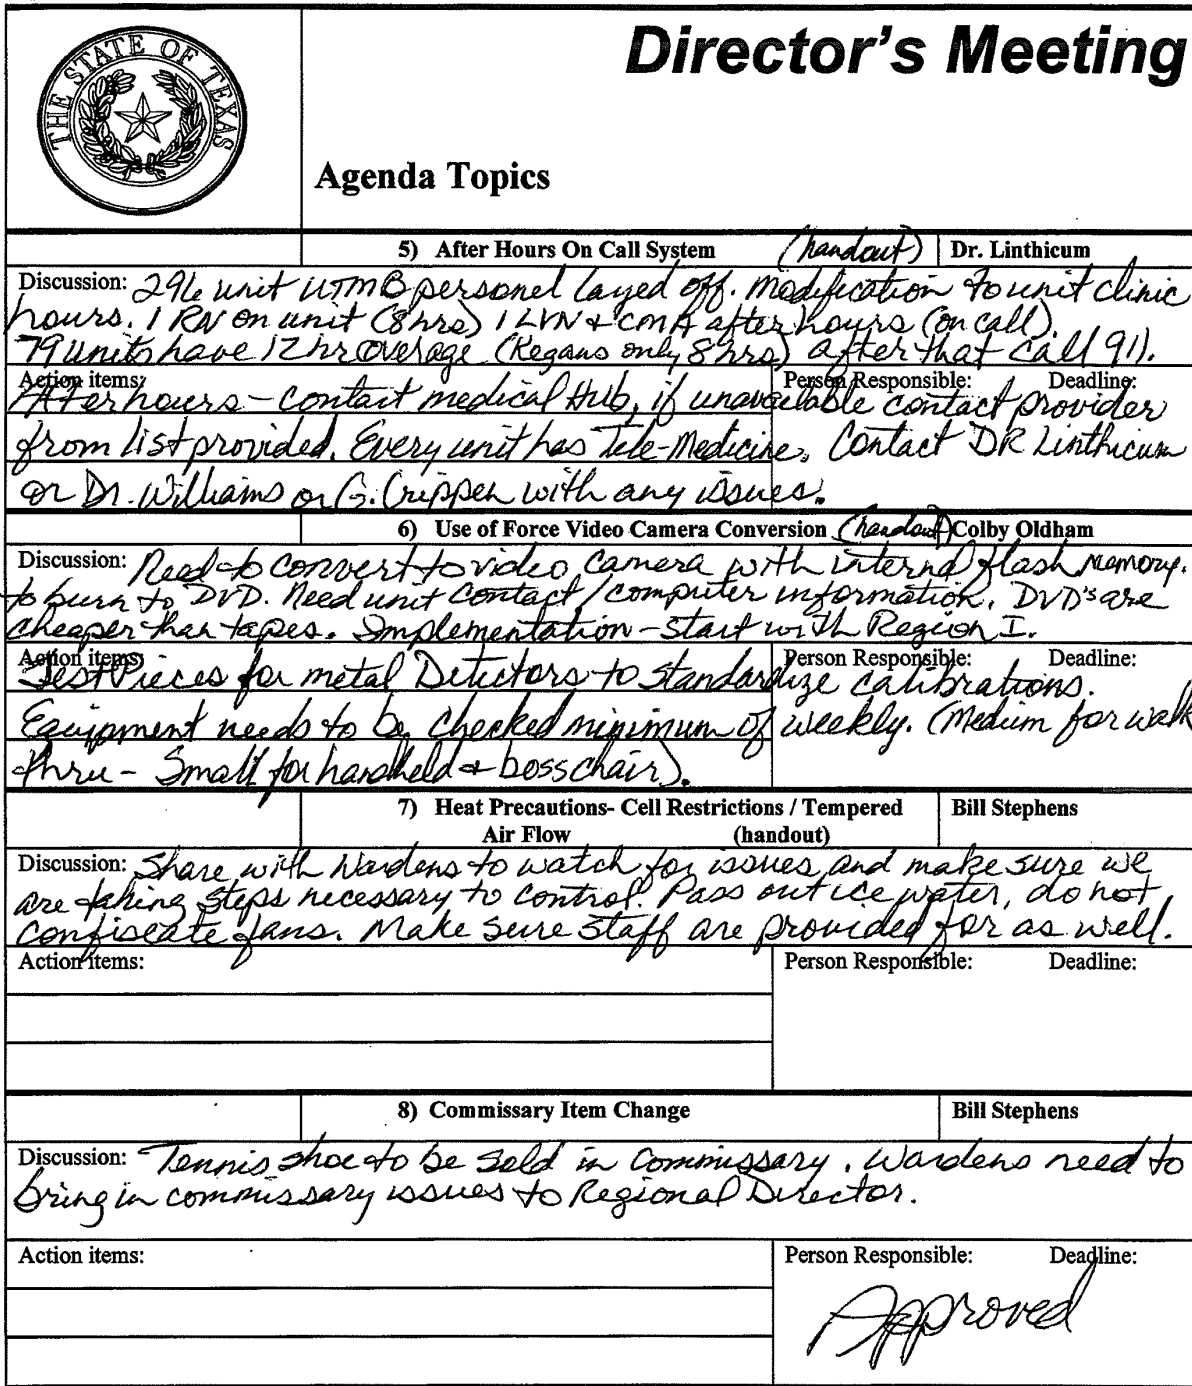 THE STATE OF TEXAS
Director's Meeting
Agenda Topics
5) After Hours On Call System (handout) Dr. Linthicum
Discussion: 296 unit UTMB personel layed off. Modification to unit clinic
hours. 1 RN on unit (8 hrs) 1 LVN & CMA after hours (on call).
79 units have 12 hr coverage (Regans only 8 hrs) after that call 911.
Action items: Person Responsible: Deadline:
After hours - contact medical Hub, if unavailable contact provider
from list provided. Every unit has Tele-Medicine. Contact DR Linthicum
or Dr. Williams or G. Crippen with any issues.
6) Use of Force Video Camera Conversion (handout) Colby Oldham
Discussion: Need to convert to video camera with internal flash memory.
to burn to DVD. Need unit contact/computer information. DVD's are
cheaper than tapes. Implementation - start with Region I.
Action items: Person Responsible: Deadline:
Test Pieces for metal Detectors to standardize calibrations.
Equipment needs to be checked minimum of weekly. (Medium for walk
thru - Small for handheld & boss chair).
7) Heat Precautions- Cell Restrictions / Tempered Bill Stephens
Air Flow (handout)
Discussion: Share with Wardens to watch for issues and make sure we
are taking steps necessary to control. Pass out ice water, do not
confiscate fans. Make sure staff are provided for as well.
Action items: Person Responsible: Deadline:
8) Commissary Item Change Bill Stephens
Discussion: Tennis shoe to be sold in Commissary. Wardens need to
bring in commissary issues to Regional Director.
Action items: Person Responsible: Deadline:
Approved